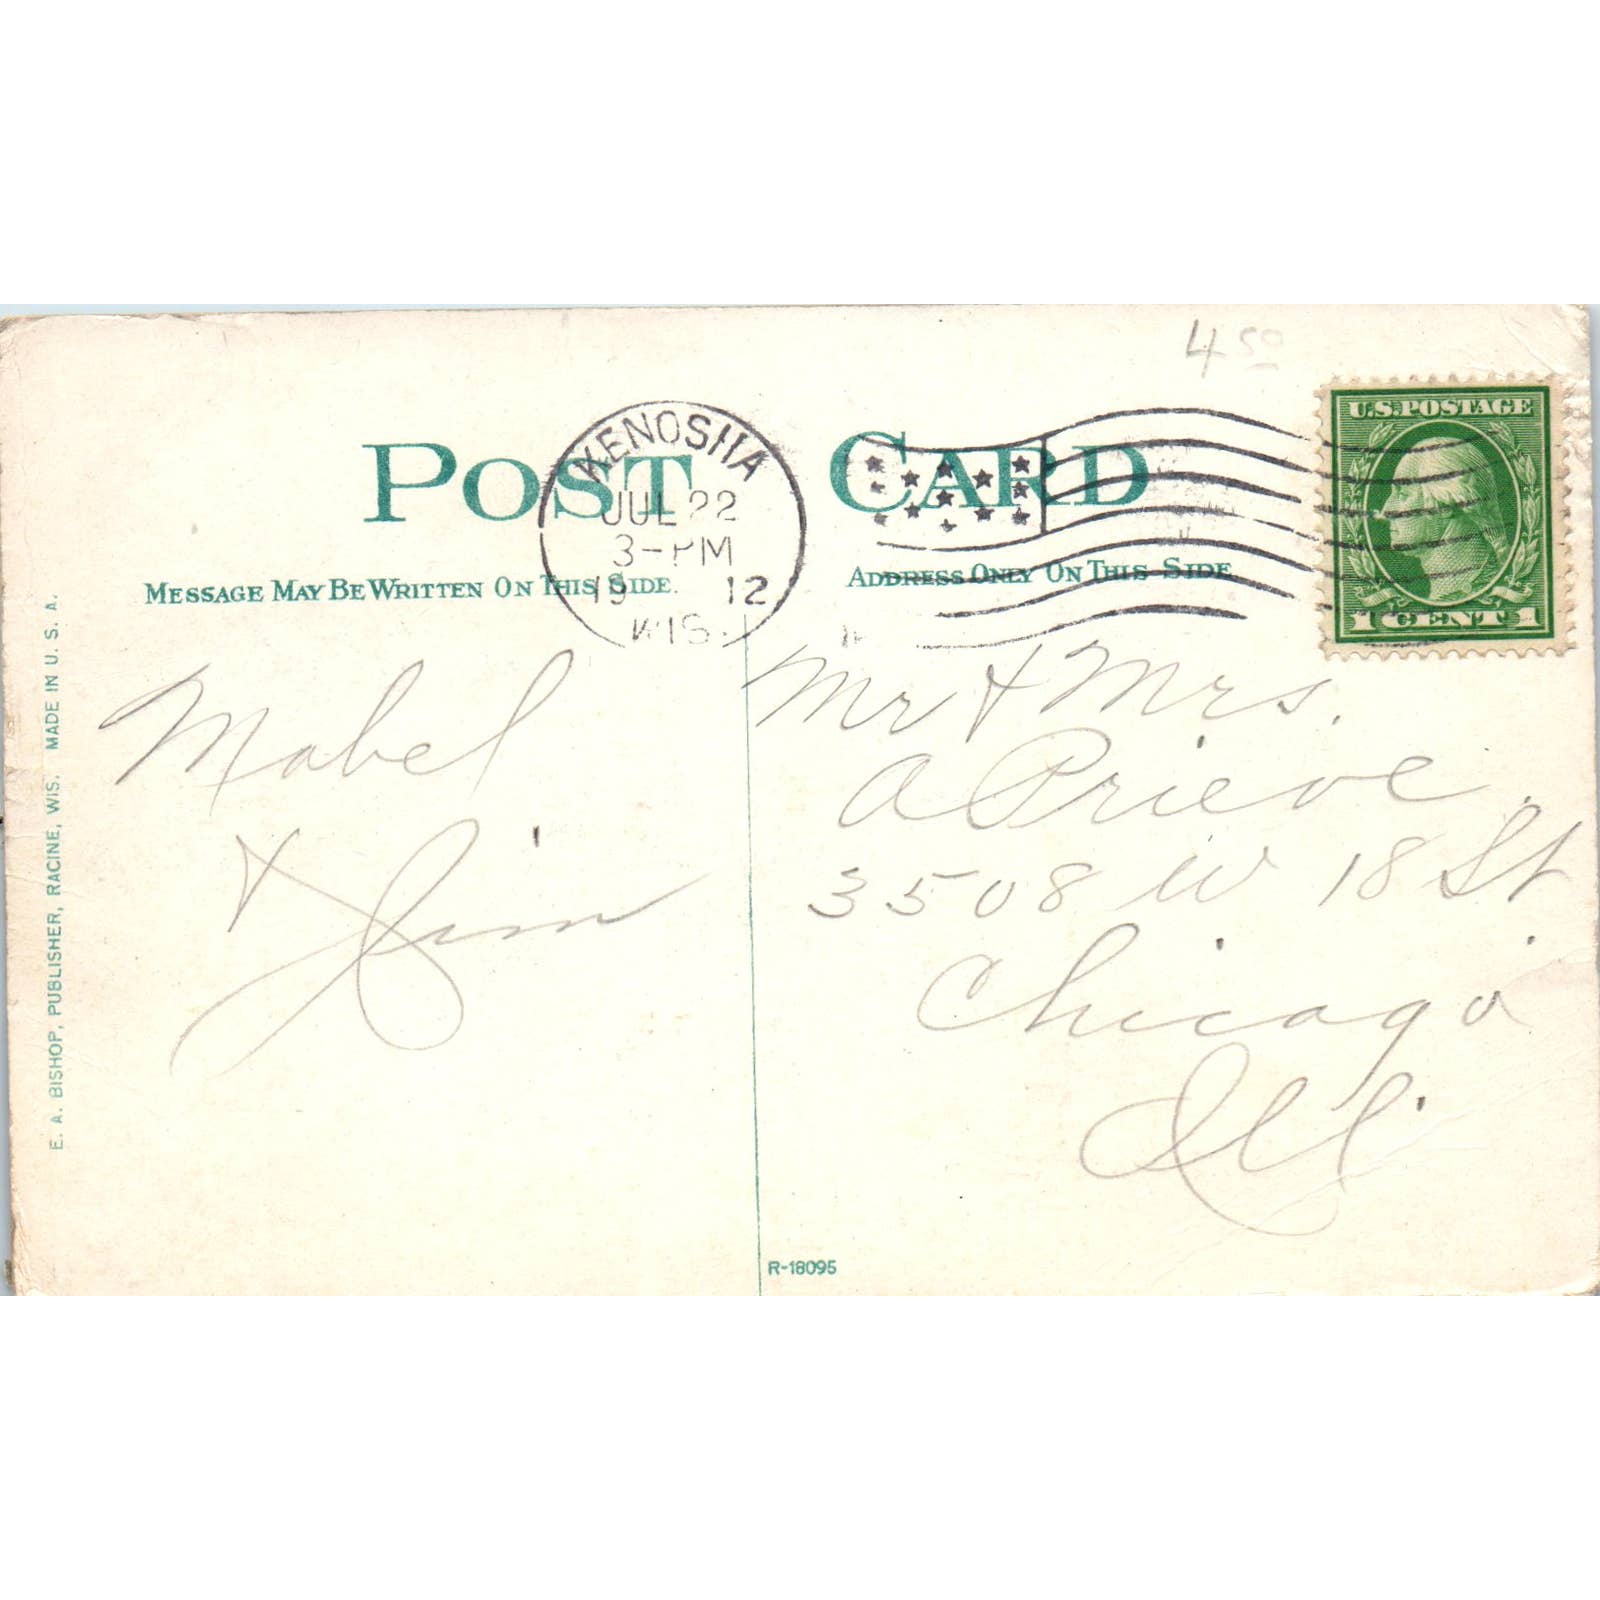 4 50
U.S. POSTAGE
POST CARD
KENOSHA
JUL 22
3-PM
19 12
WIS.
1 CENT 1
MESSAGE MAY BE WRITTEN ON THIS SIDE.
ADDRESS ONLY ON THIS SIDE
Mabel
& Jim
Mr & Mrs.
A Prieve
3508 W 18 St.
Chicago
Ill.
E. A. BISHOP, PUBLISHER, RACINE, WIS. MADE IN U. S. A.
R-18095